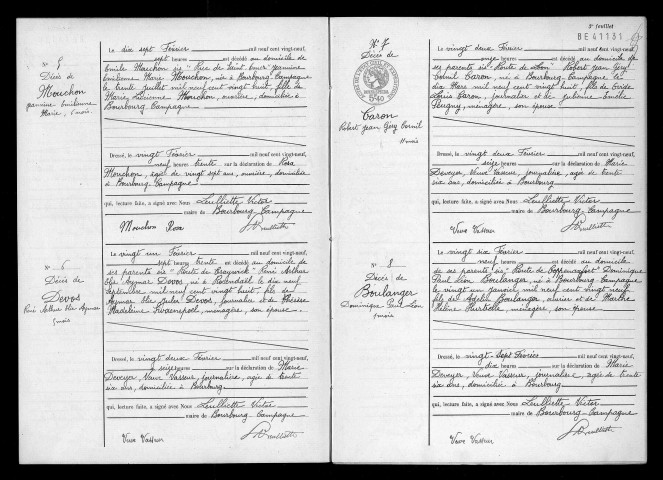 N° 5
Décès de
Mouchon
Jeannine Emilienne
Marie, 6 mois.
Le dix sept Février mil neuf cent vingt-neuf,
sept heures est décédé au domicile de
Emile Mouchon sis "Rue de Saint-" Jeannine
Emilienne Marie Mouchon, née à Bourbourg-Campagne
le trente Juillet mil neuf cent vingt huit, fille de
Marie Lucienne Mouchon, ouvrière, domiciliée à
Bourbourg Campagne
Dressé, le vingt Février mil neuf cent vingt-neuf,
neuf heures trente sur la déclaration de Rosa
Mouchon, agée de vingt sept ans, ouvrière, domiciliée
à Bourbourg Campagne
qui, lecture faite, a signé avec Nous Leulliette Victor
maire de Bourbourg-Campagne
Mouchon Rosa
N° 6
Décès de
Devos
René Arthur Elie Aymar
5 mois
Le vingt un Février mil neuf cent vingt-neuf,
sept heures trente est décédé au domicile de
ses parents sis "Route de Craywick" René Arthur
Elie Aymar Devos, né à Rosendaël le dix neuf
Septembre mil neuf cent vingt huit, fils de
Aymar Elie Jules Devos, journalier et de Thérèse
Madeleine, ménagère, son épouse.
Dressé, le vingt deux Février mil neuf cent vingt-neuf,
à seize heures sur la déclaration de Marie
Deveyer, Veuve Vasseur, journalière, agée de trente
six ans, domiciliée à Bourbourg
qui, lecture faite, a signé avec Nous Leulliette Victor
maire de Bourbourg Campagne
Veuve Vasseur
3e feuillet
BE41131
N° 7
Décès de
Caron
Robert Jean Géry Cornil
11 mois
Le vingt deux Février mil neuf cent vingt-neuf,
sept heures est décédé au domicile de
ses parents sis "Route de" Robert Jean Géry
Cornil Caron, né à Bourbourg-Campagne le
dix Mars mil neuf cent vingt huit, fils de
Louis Caron, journalier et de
ménagère, son épouse
Dressé, le vingt deux Février mil neuf cent vingt-neuf,
seize heures sur la déclaration de Marie
Deveyer, Veuve Vasseur, journalière, agée de trente
six ans, domiciliée à Bourbourg
qui, lecture faite, a signé avec Nous Leulliette Victor
maire de Bourbourg-Campagne
Veuve Vasseur
N° 8
Décès de
Boulanger
Dominique Paul Léon
1 mois
Le vingt six Février mil neuf cent vingt-neuf,
neuf heures est décédé au domicile
de ses parents sis "Route de Coppenaxfort" Dominique
Paul Léon Boulanger, né à Bourbourg-Campagne
le vingt un Janvier mil neuf cent vingt neuf,
fils de Boulanger, ouvrier et de Marthe
Hélène, ménagère, son épouse
Dressé, le vingt-Sept Février mil neuf cent vingt-neuf,
dix heures sur la déclaration de Marie
Deveyer, Veuve Vasseur, journalière, agée de trente
six ans, domiciliée à Bourbourg
qui, lecture faite, a signé avec Nous Leulliette Victor
maire de Bourbourg-Campagne
Veuve Vasseur